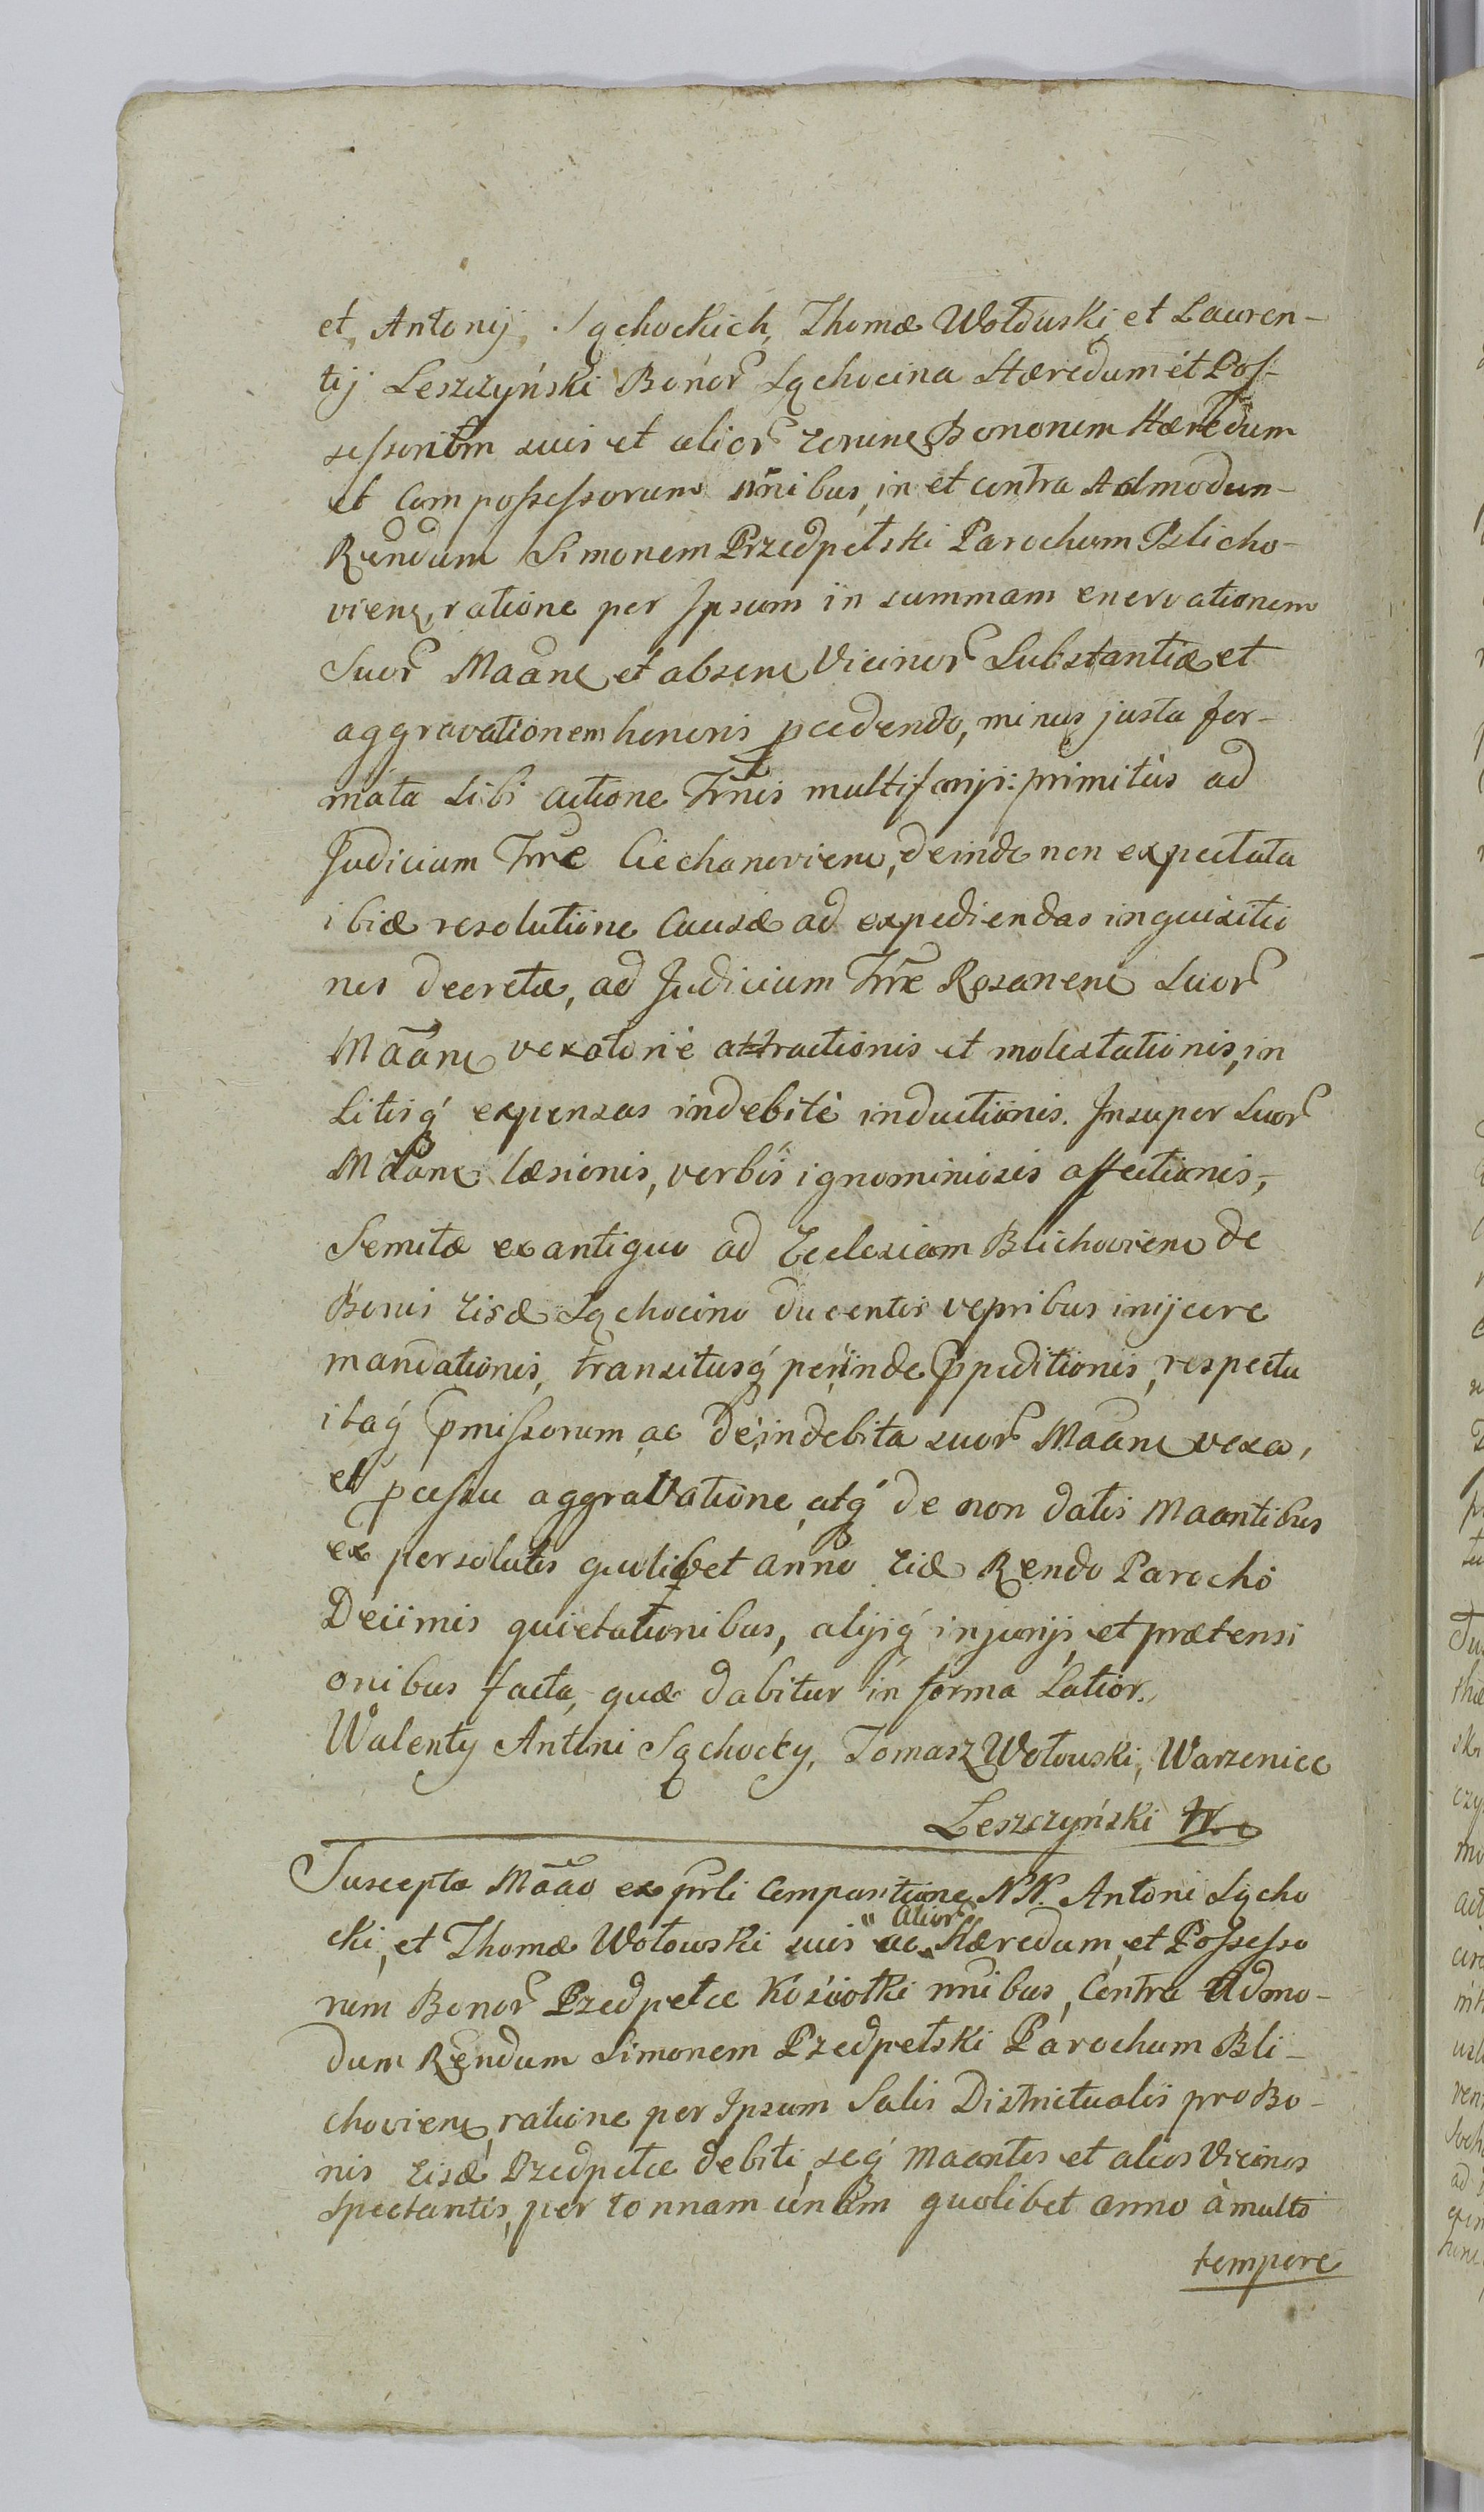 et, Antonij, Sąchockich, Thomæ Wołouski et Lauren-
tij Leszczyński Bonor Sąchocina Hæredum et Pos-
sessorum suis et alior eorund Bonorum Hæredum
et Compossessorum nnibus, in et contra Admodum-
Rendum Simonem Przedpełski Parochum Blicho-
viens, ratione per Ipsum in summam enervationem
Suor Maane et absene Vicinor Substantiæ et
aggravationem honoris pcedendo, minus justa for-
mata sibi actione Trnis multifarijs: primitus ad
Judicium Trre Ciechanoviens, deinde non expectata
ibiæ resolutione Causæ ad expediendas inquisitio
nes decretæ, ad Judicium Trre Rosanens Suor
Maane vexatorie attractionis et molestationis, in
Litisq expensas indebite inductionis. Insuper Suor
Maane læsionis, verbis ignominiosis affectionis,
Semitæ ex antiquo ad Ecclesiam Blichoviens de
Bonis eisd Sąchocino ducentis vepribus inijcere
mandationis, transitusq perinde ppeditionis, respectu
itaq pmissorum ac de indebita suor Maane vexa,
et pcessu aggravatione, atq de non datis Maantibus
ex persolutis quolibet anno eid Rendo Parocho
Decimis quietationibus, alijsq injurijs et prætensi
onibus facta, quæ dabitur in forma Latior.
Walenty Antoni Sąchocky, Tomasz Wołouski, Warzeniec
Leszczyński
Suscepta Maao ex prli Comparitione NN. Antoni Sącho
cki, et Thomæ Wołowski suis ac alior Hæredum et Possesso
rum Bonor Przedpełce Kosciołki nnibus, Contra Admo-
dum Rendum Simonem Przedpełski Parochum Bli-
choviens, ratione per Ipsum Salis Districtualis pro Bo-
nis eisd Przedpełce debiti, seq Maantes et alios Vicinos
spectantis, per tonnam unam quolibet anno à multo
tempore